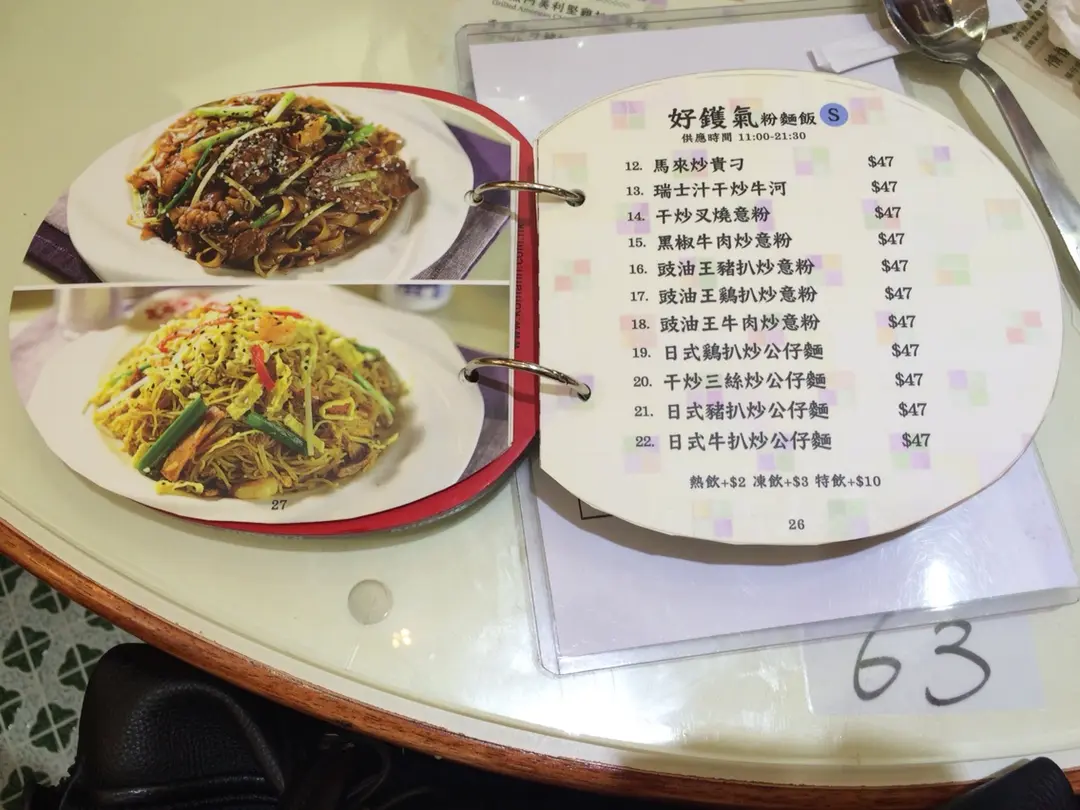 Grilled American
27
www.
好鑊氣粉麵飯 S
供應時間 11:00-21:30
12. 馬來炒貴刁 $47
13. 瑞士汁干炒牛河 $47
14. 干炒叉燒意粉 $47
15. 黑椒牛肉炒意粉 $47
16. 豉油王豬扒炒意粉 $47
17. 豉油王鷄扒炒意粉 $47
18. 豉油王牛肉炒意粉 $47
19. 日式鷄扒炒公仔麵 $47
20. 干炒三絲炒公仔麵 $47
21. 日式豬扒炒公仔麵 $47
22. 日式牛扒炒公仔麵 $47
熱飲+$2 凍飲+$3 特飲+$10
26
63